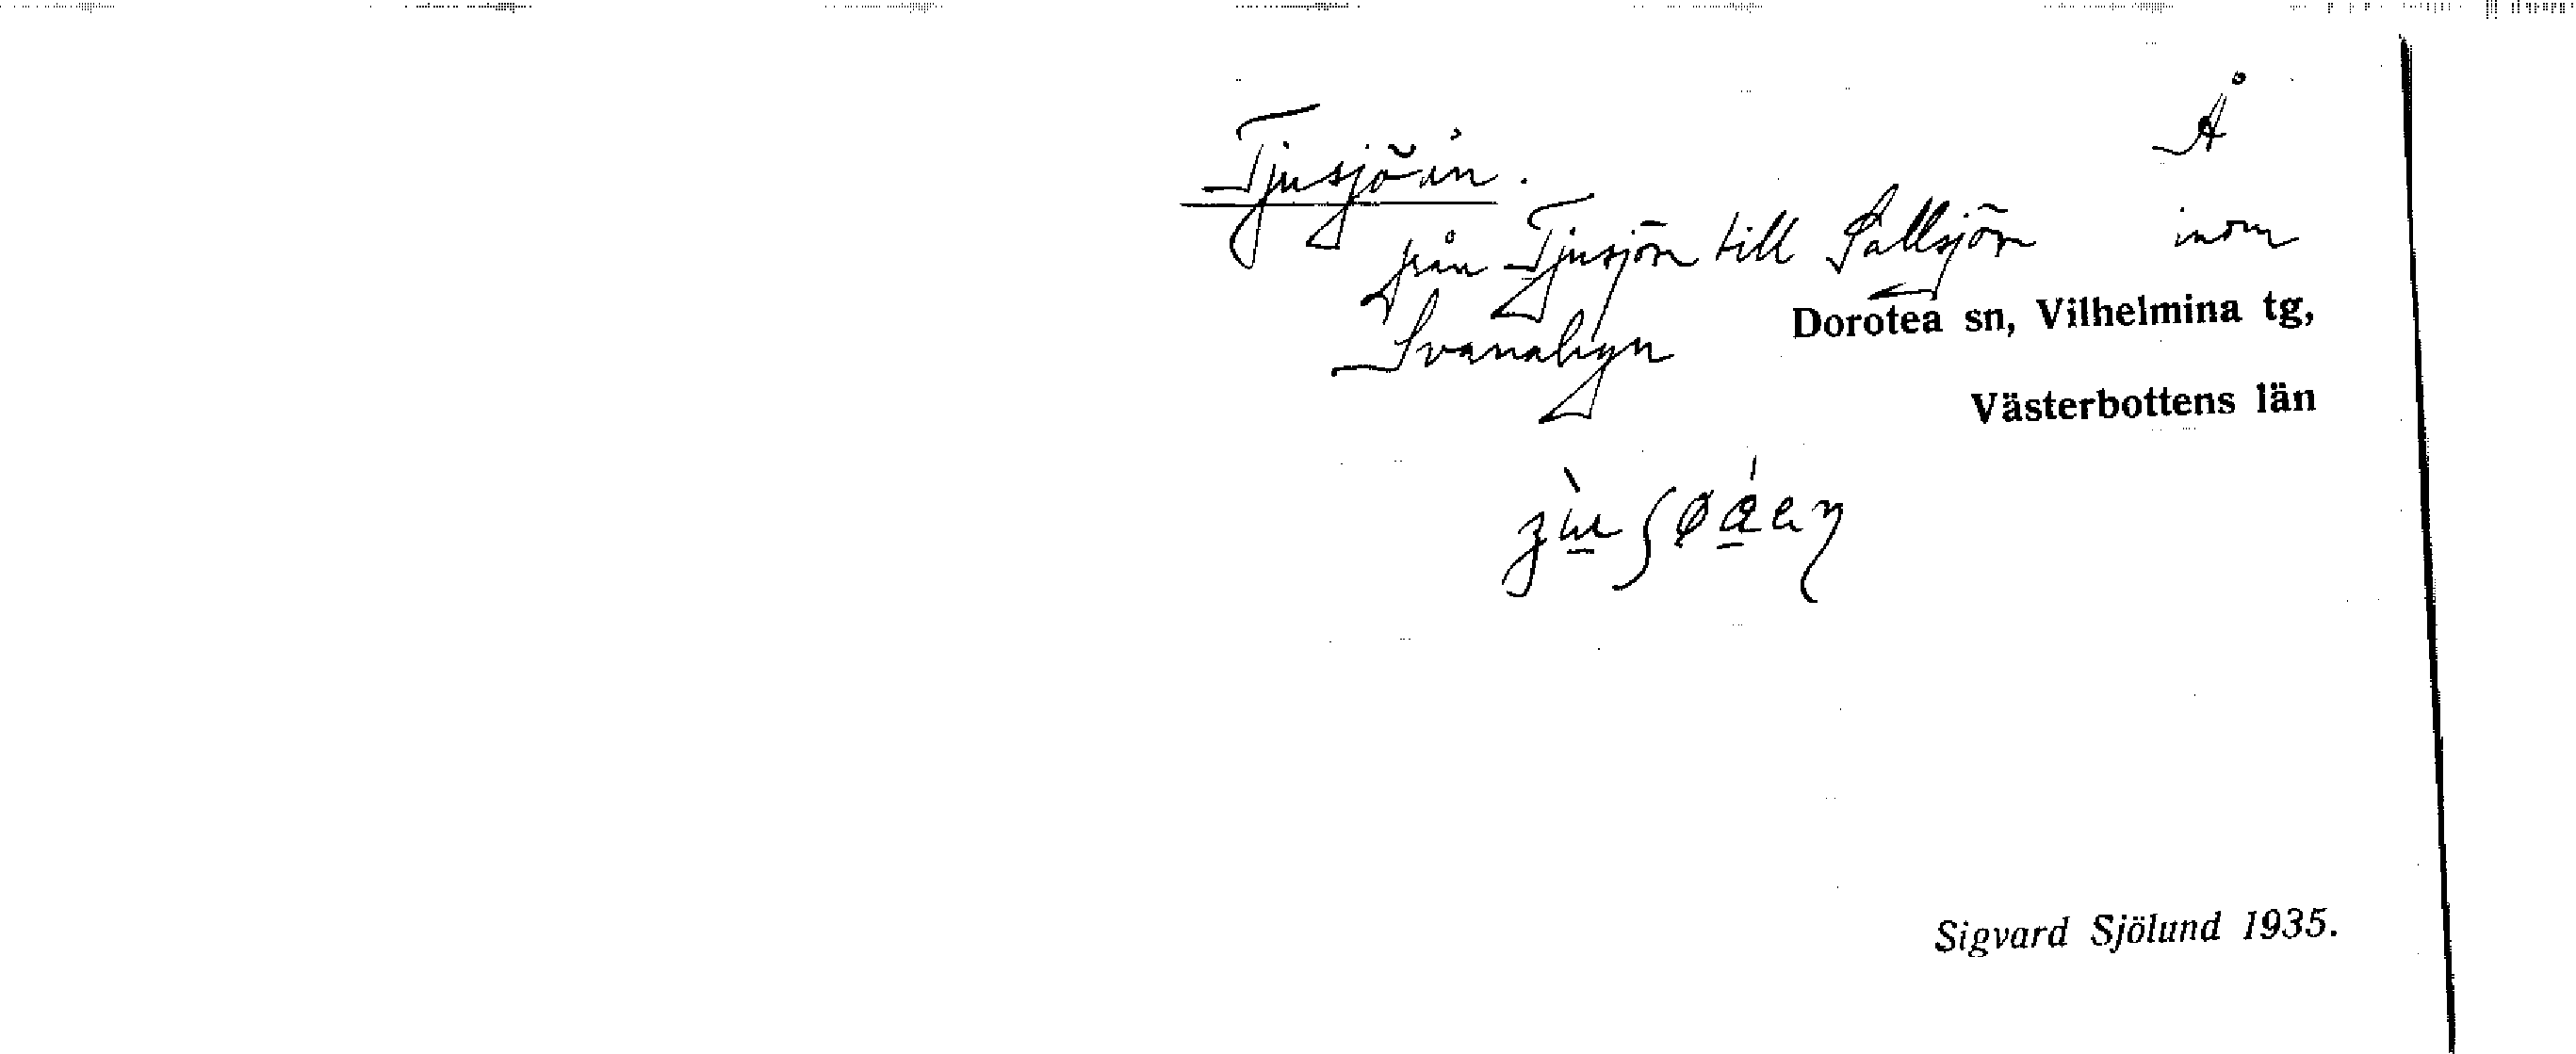 Å
Tjusjöån.
från Tjusjön till Sällsjön inom
Svanabyn
Dorotea sn, Vilhelmina tg,
Västerbottens län
Sigvard Sjölund 1935.